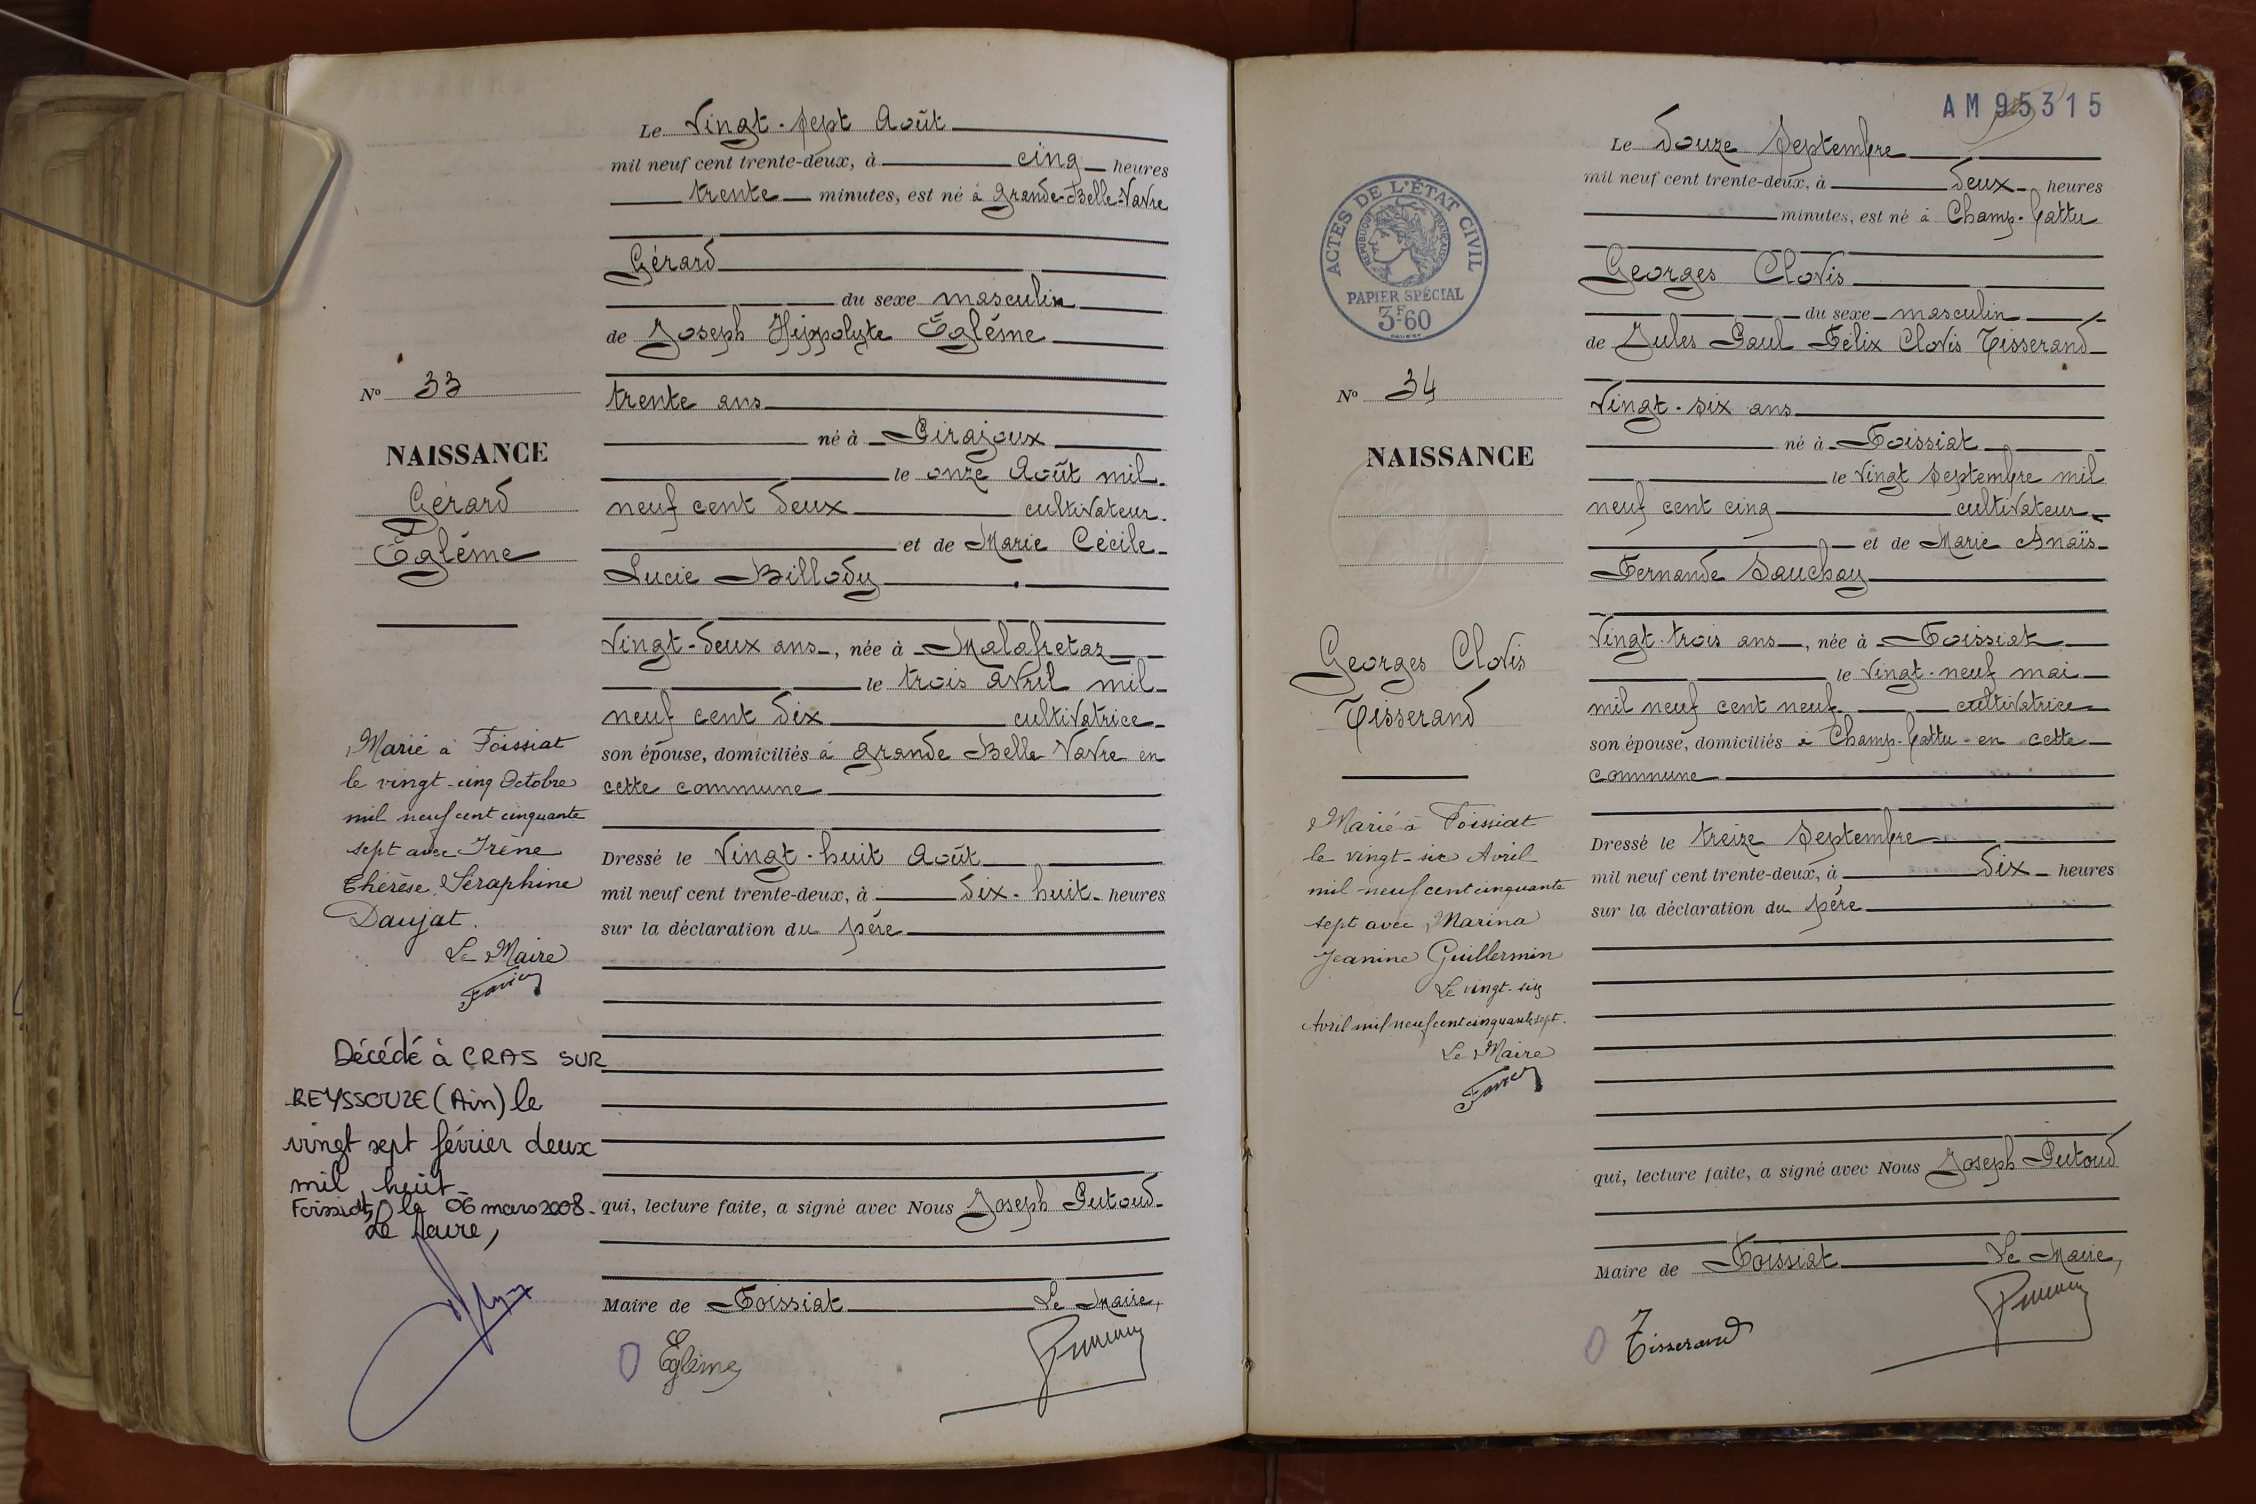 Le Vingt-sept Août
mil neuf cent trente-deux, à cinq heures
trente minutes, est né à Grande-Belle-Vavre
Gérard
du sexe masculin
de Joseph Hippolyte Eglème
trente ans
né à Pirajoux
le onze Août mil
neuf cent deux cultivateur
et de Marie Cécile
Lucie Billoud
Vingt-deux ans, née à Malafretaz
le trois avril mil
neuf cent dix cultivatrice
son épouse, domiciliés à Grande Belle Vavre en
cette commune
Dressé le Vingt-huit Août
mil neuf cent trente-deux, à dix-huit heures
sur la déclaration du père
qui, lecture faite, a signé avec Nous Joseph Putoud
Maire de Foissiat Le Maire,
Eglème
N° 33
NAISSANCE
Gérard
Eglème
Marié à Foissiat
le vingt-cinq Octobre
mil neuf cent cinquante
sept avec Irène
Thérèse Séraphine
Daujat.
Le Maire
Décédé à CRAS SUR
REYSSOUZE (Ain) le
vingt sept février deux
mil huit
Foissiat, le 06 mars 2008
Le Maire,
AM 95315
Le Douze Septembre
mil neuf cent trente-deux, à deux heures
minutes, est né à Champ-Cattu
Georges Clovis
du sexe masculin
de Jules Paul Félix Clovis Tisserand
Vingt-six ans
né à Foissiat
le vingt septembre mil
neuf cent cinq cultivateur
et de Marie Anaïs
Fernande Sauchay
Vingt-trois ans, née à Foissiat
le vingt-neuf mai
mil neuf cent neuf cultivatrice
son épouse, domiciliés à Champ-Cattu en cette
commune
Dressé le treize Septembre
mil neuf cent trente-deux, à dix heures
sur la déclaration du père
qui, lecture faite, a signé avec Nous Joseph Putoud
Maire de Foissiat Le Maire,
Tisserand
ACTES DE L'ÉTAT CIVIL
RÉPUBLIQUE FRANÇAISE
PAPIER SPÉCIAL
3F60
N° 34
NAISSANCE
Georges Clovis
Tisserand
Marié à Foissiat
le vingt-six Avril
mil neuf cent cinquante
sept avec Marina
Jeanine Guillermin
Le vingt-six
Avril mil neuf cent cinquante sept.
Le Maire